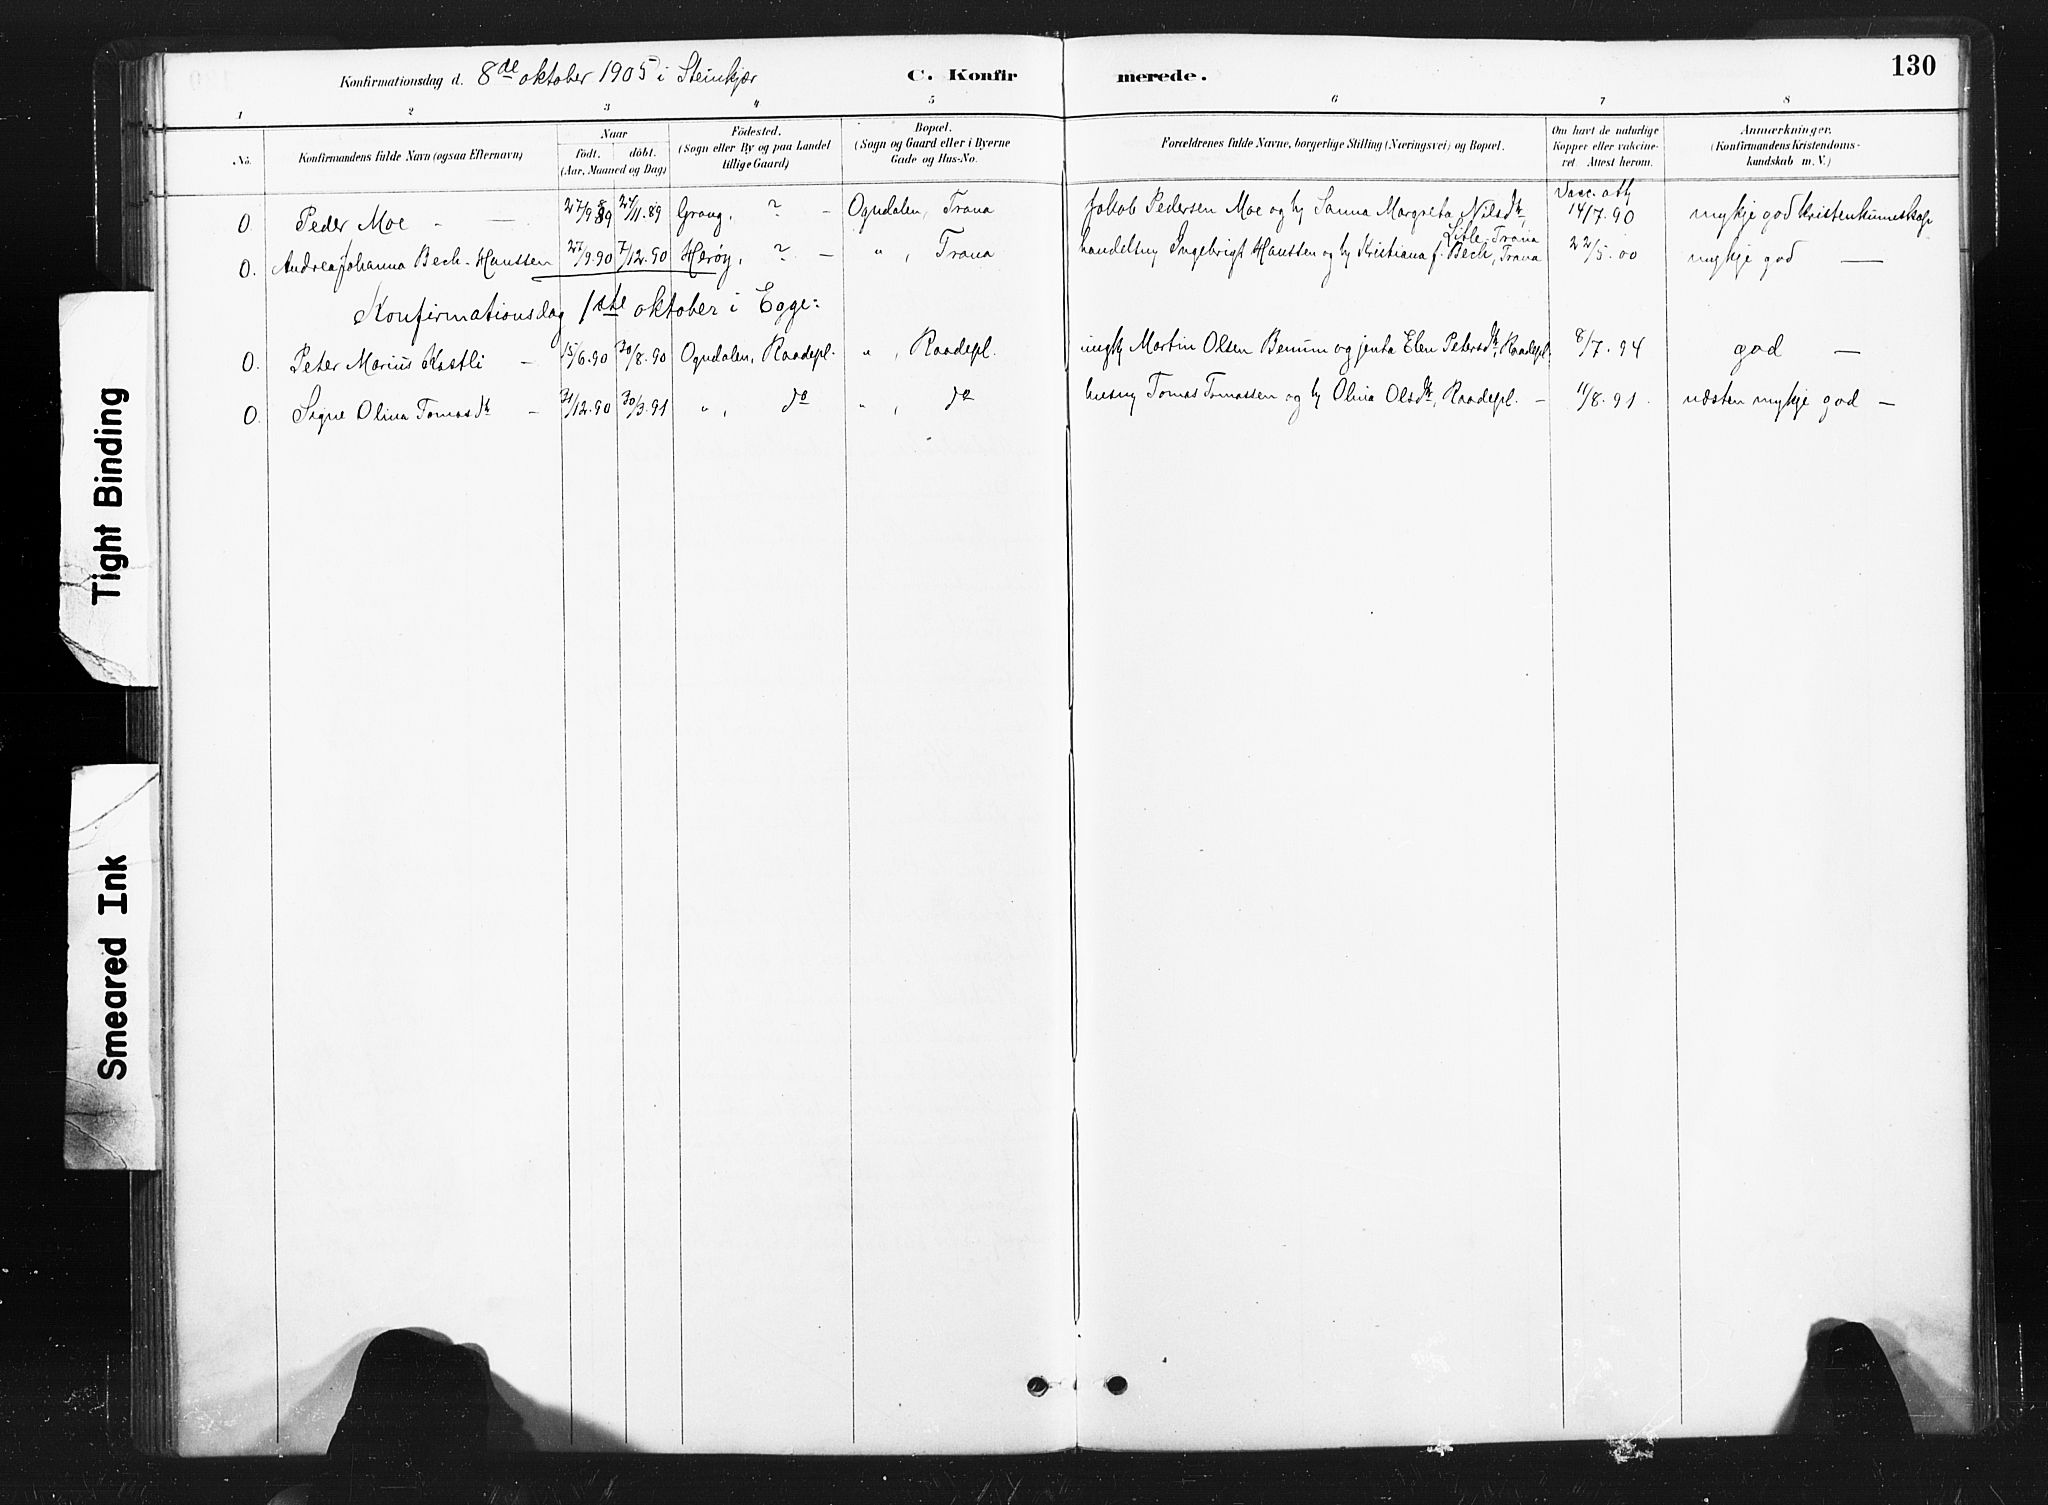 Tight Binding
Smeared Ink
130
Konfirmationsdag d. 8de oktober 1905 i Steinkjær
C. Konfirmerede.
1 2 3 4 5 6 7 8
No.
Konfirmandens fulde Navn (ogsaa Efternavn)
Naar
födt. döbt.
(Aar, Maaned og Dag)
Födested.
(Sogn eller By og paa Landet
tillige Gaard)
Bopæl.
(Sogn og Gaard eller i Byerne
Gade og Hus-No.
Forældrenes fulde Navne, borgerlige Stilling (Næringsvei) og Bopæl.
Om havt de naturlige
Kopper eller vakcine-
ret. Attest herom.
Anmærkninger.
(Konfirmandens Kristendoms-
kundskab m. V.)
Vacc. att.
O. Peder Moe — 27/9.89 24/11.89 Grong, ? — Ogndalen, Trana Jakob Pedersen Moe og h Sanna Margreta Nilsdtr, 14/7.90 mykje god kristenkunnskap
Litle-Trana
O. Andrea Johanna Bech-Hanssen 27/9.90 7/12.90 Herøy, ? — " , Trana handelsm Ingebrigt Hanssen og h Kristiana f. Bech, Trana 22/5.00 mykje god —
Konfirmationsdag 1ste oktober i Egge:
O. Peter Marius Kastli — 15/6.90 30/8.90 Ogndalen, Raadepl. " , Raadepl. ungk Martin Olsen Benum og jenta Elen Petersdtr, Raadepl. 8/7.94 god —
O. Signe Olina Tomasdtr — 31/12.90 30/3.91 " , do " , do husm Tomas Tomassen og h Olina Olsdtr, Raadepl. — 11/8.91. næsten mykje god —